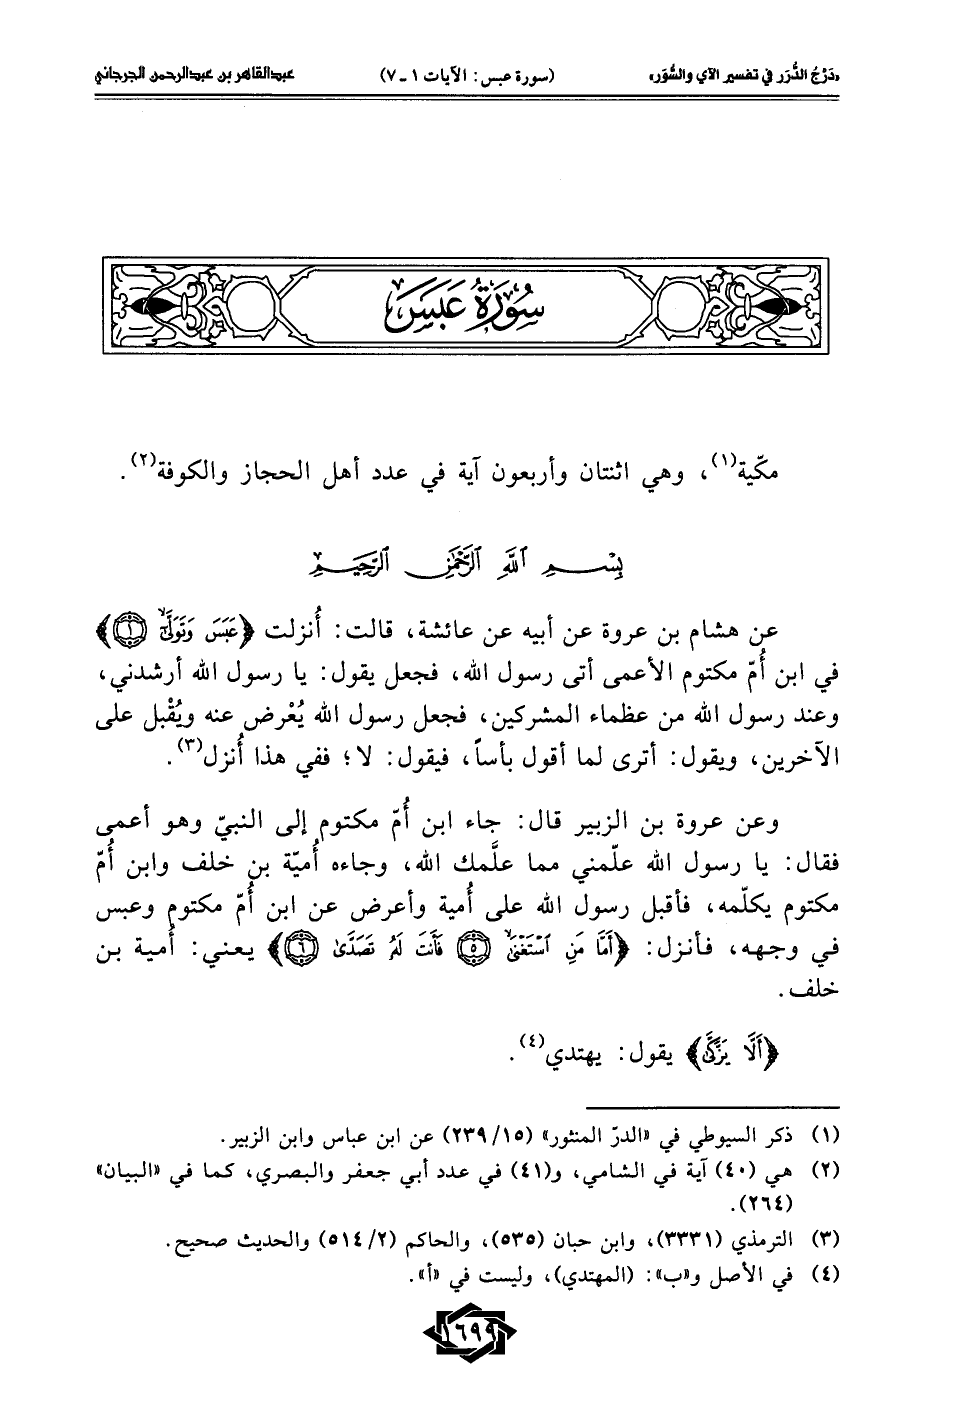 «دَرْجُ الدُّرَر في تفسير الآي والسُّوَر» (سورة عبس: الآيات ١ ـ ٧) عبدالقاهر بن عبدالرحمن الجرجاني
سُورَةُ عَبَسَ
مكّية(١)، وهي اثنتان وأربعون آية في عدد أهل الحجاز والكوفة(٢).
بِسْمِ اللَّهِ الرَّحْمَٰنِ الرَّحِيمِ
عن هشام بن عروة عن أبيه عن عائشة، قالت: أُنزلت ﴿عَبَسَ وَتَوَلَّىٰٓ ۝١﴾
في ابن أُمّ مكتوم الأعمى أتى رسول الله، فجعل يقول: يا رسول الله أرشدني،
وعند رسول الله من عظماء المشركين، فجعل رسول الله يُعْرض عنه ويُقْبل على
الآخرين، ويقول: أترى لما أقول بأساً، فيقول: لا؛ ففي هذا أُنزل(٣).
وعن عروة بن الزبير قال: جاء ابن أُمّ مكتوم إلى النبيّ وهو أعمى
فقال: يا رسول الله علّمني مما علَّمك الله، وجاءه أُميّة بن خلف وابن أُمّ
مكتوم يكلّمه، فأقبل رسول الله على أُمية وأعرض عن ابن أُمّ مكتوم وعبس
في وجهه، فأنزل: ﴿أَمَّا مَنِ اسْتَغْنَىٰ ۝٥ فَأَنتَ لَهُ تَصَدَّىٰ ۝٦﴾ يعني: أُمية بن
خلف.
﴿أَلَّا يَزَّكَّىٰ﴾ يقول: يهتدي(٤).
(١) ذكر السيوطي في «الدرّ المنثور» (١٥/ ٢٣٩) عن ابن عباس وابن الزبير.
(٢) هي (٤٠) آية في الشامي، و(٤١) في عدد أبي جعفر والبصري، كما في «البيان»
(٢٦٤).
(٣) الترمذي (٣٣٣١)، وابن حبان (٥٣٥)، والحاكم (٢/ ٥١٤) والحديث صحيح.
(٤) في الأصل و«ب»: (المهتدي)، وليست في «أ».
١٦٩٩